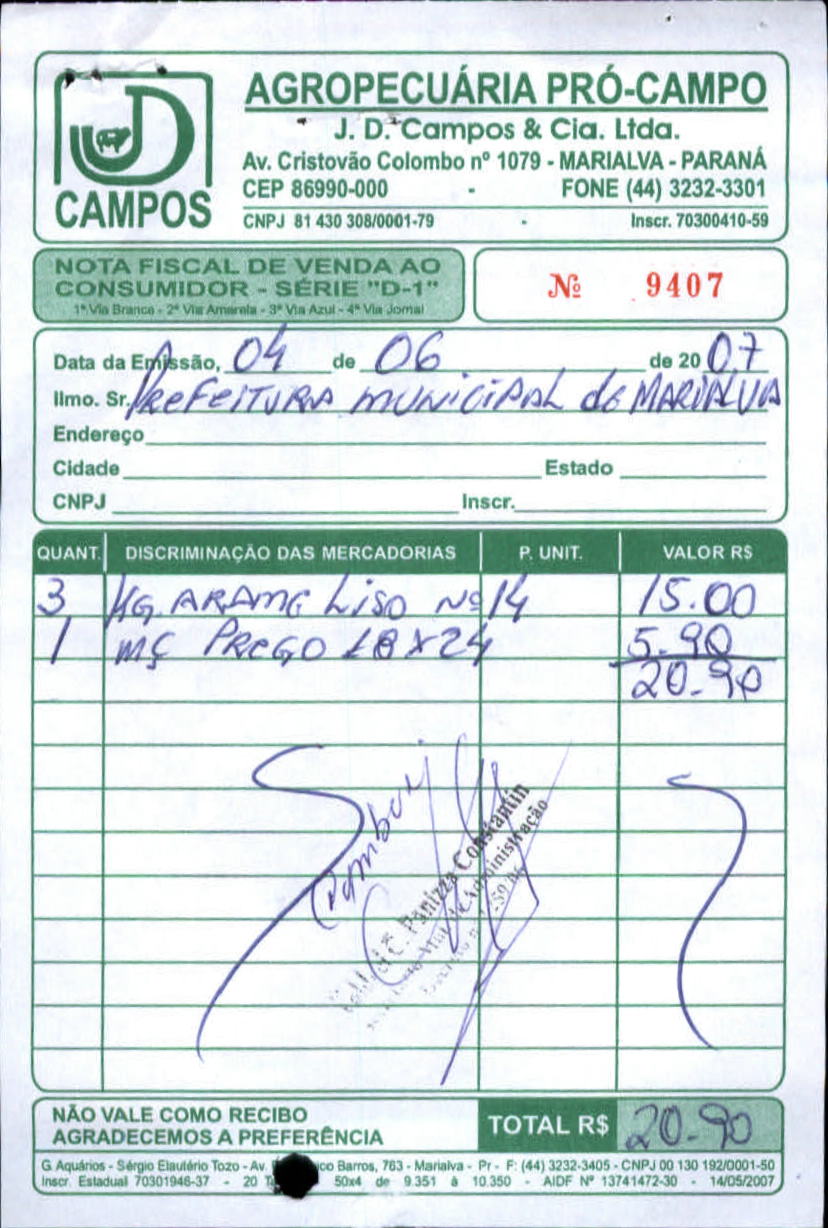 AGROPECUÁRIA PRÓ-CAMPO
J. D. Campos & Cia. Ltda.
Av. Cristovão Colombo nº 1079 - MARIALVA - PARANÁ
CEP 86990-000 - FONE (44) 3232-3301
CNPJ 81 430 308/0001-79 - Inscr. 70300410-59
JD
CAMPOS
NOTA FISCAL DE VENDA AO
CONSUMIDOR - SÉRIE "D-1"
1ª Via Branca - 2ª Via Amarela - 3ª Via Azul - 4ª Via Jornal
Nº 9407
Data da Emissão, 04 de 06 de 2007
Ilmo. Sr. PREFEITURA MUNICIPAL de MARIALVA
Endereço
Cidade Estado
CNPJ Inscr.
QUANT. DISCRIMINAÇÃO DAS MERCADORIAS P. UNIT. VALOR R$
3 KG ARAME LISO Nº 14 15.00
1 MÇ PREGO 18 X 24 5.90
20.90
Panizza Constantin
Administração
NÃO VALE COMO RECIBO
AGRADECEMOS A PREFERÊNCIA
TOTAL R$ 20.90
G. Aquários - Sérgio Elautério Tozo - Av. Barros, 763 - Marialva - Pr - F: (44) 3232-3405 - CNPJ 00 130 192/0001-50
Inscr. Estadual 70301946-37 - 20 50x4 de 9.351 à 10.350 - AIDF Nº 13741472-30 - 14/05/2007